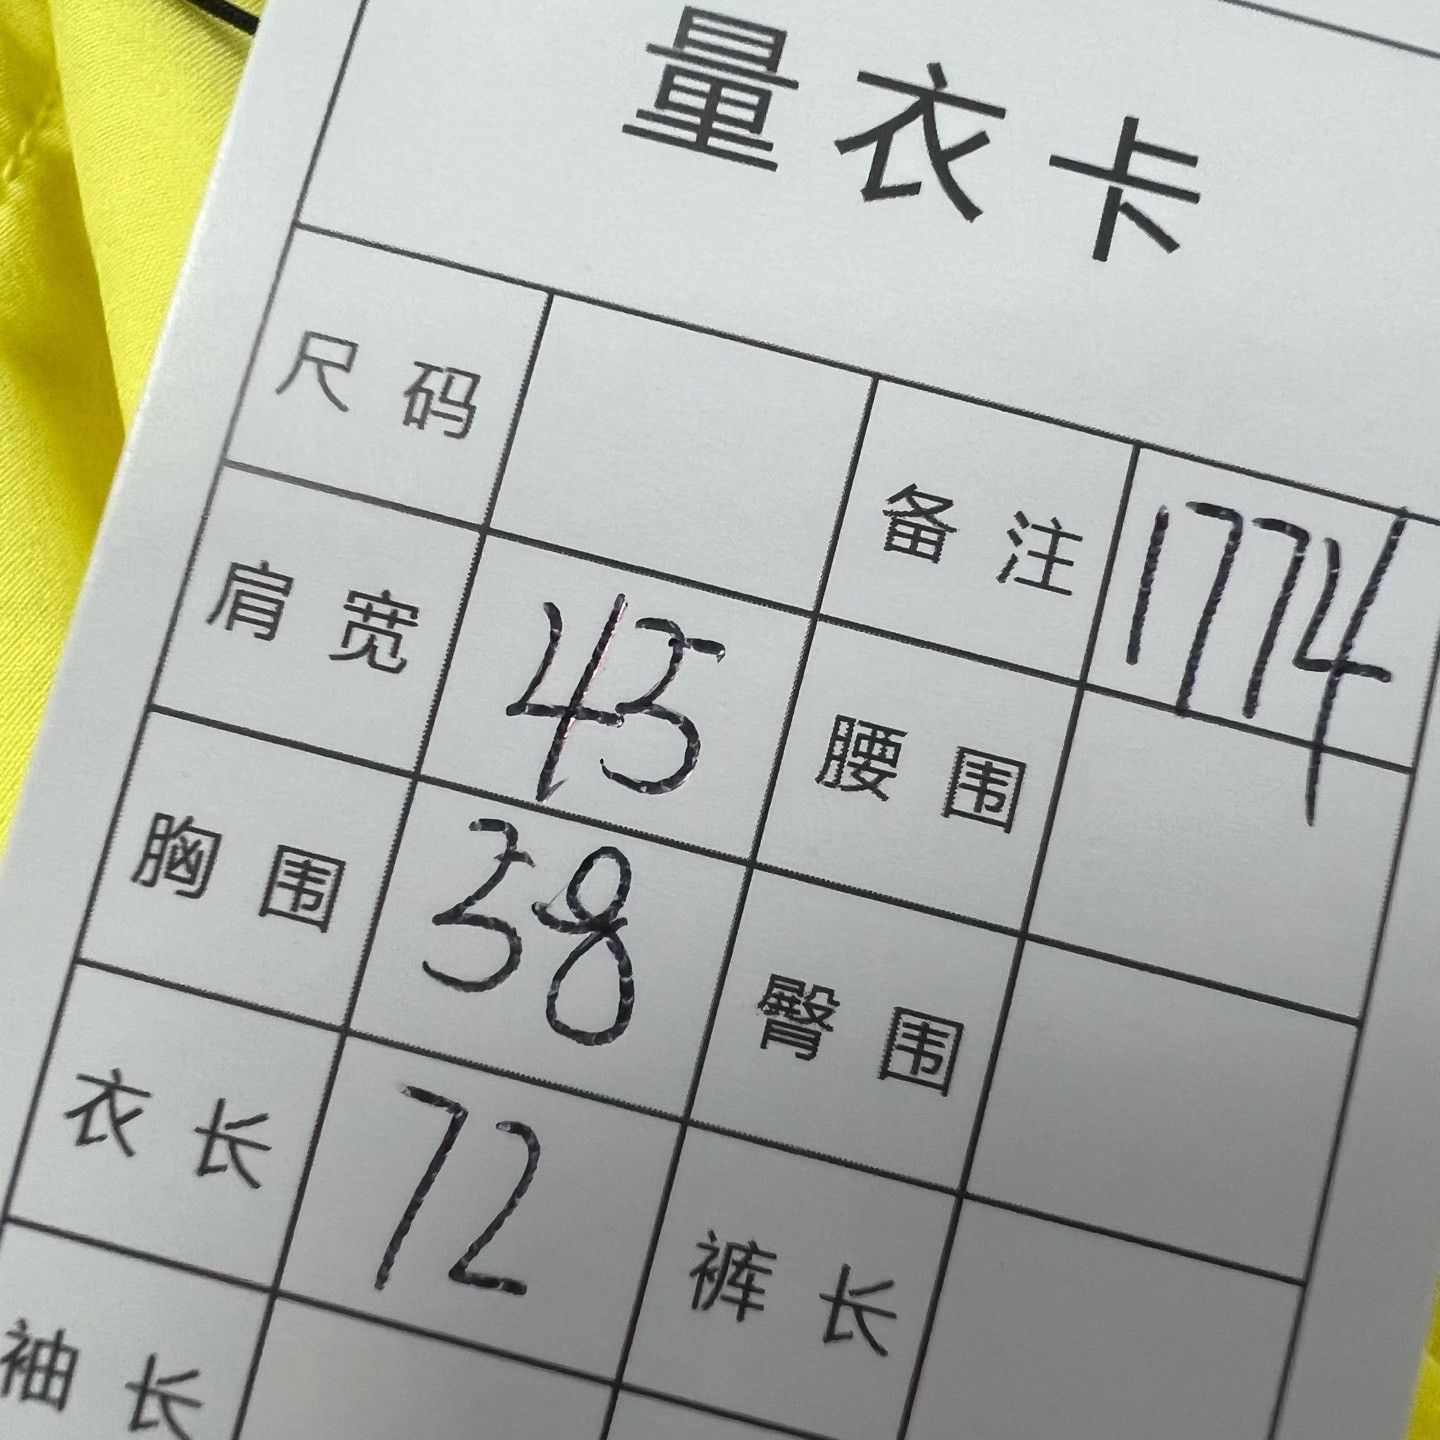 量衣卡
尺码 备注 1774
肩宽 45 腰围
胸围 58 臀围
衣长 72 裤长
袖长